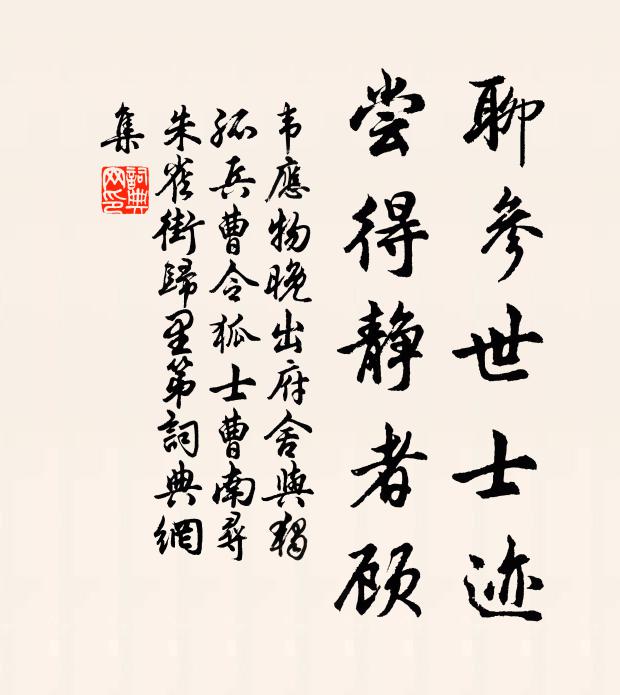 聊參世士迹
尝得靜者顾
韦應物晚出府舍與獨
孤兵曹令狐士曹南尋
朱雀街歸里第詞典網
集
詞典
网印